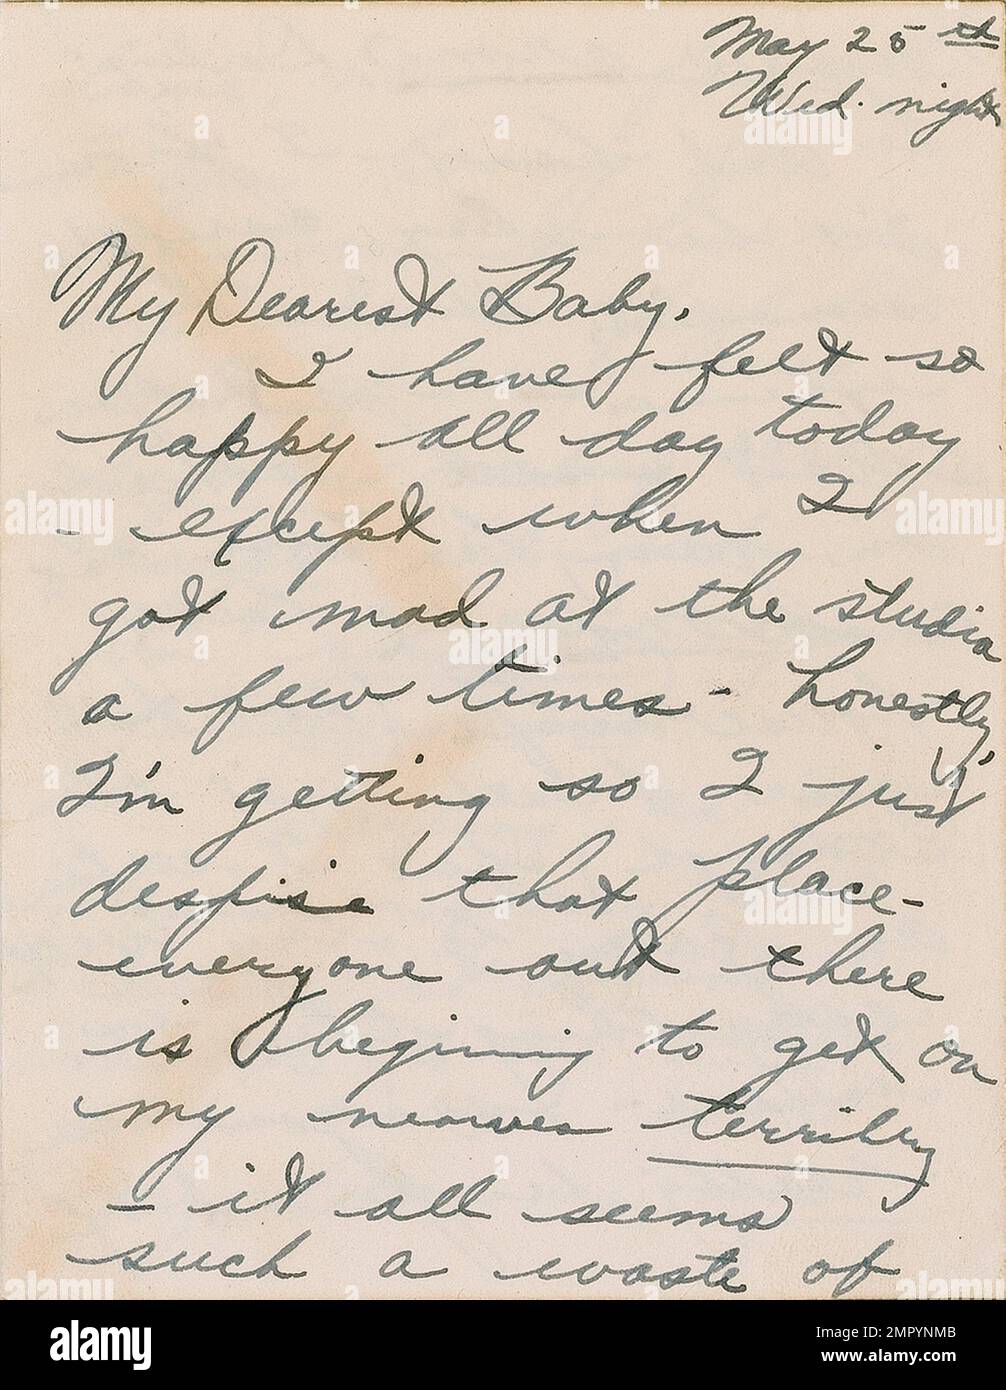 May 25th
Wed. night
My Dearest Baby,
I have felt so
happy all day today
- except when I
got mad at the studio
a few times - honestly,
I'm getting so I just
despise that place -
everyone out there
is begining to get on
my nerves terribly
- it all seems
such a waste of
alamy
Image ID: 2MPYNMB
www.alamy.com